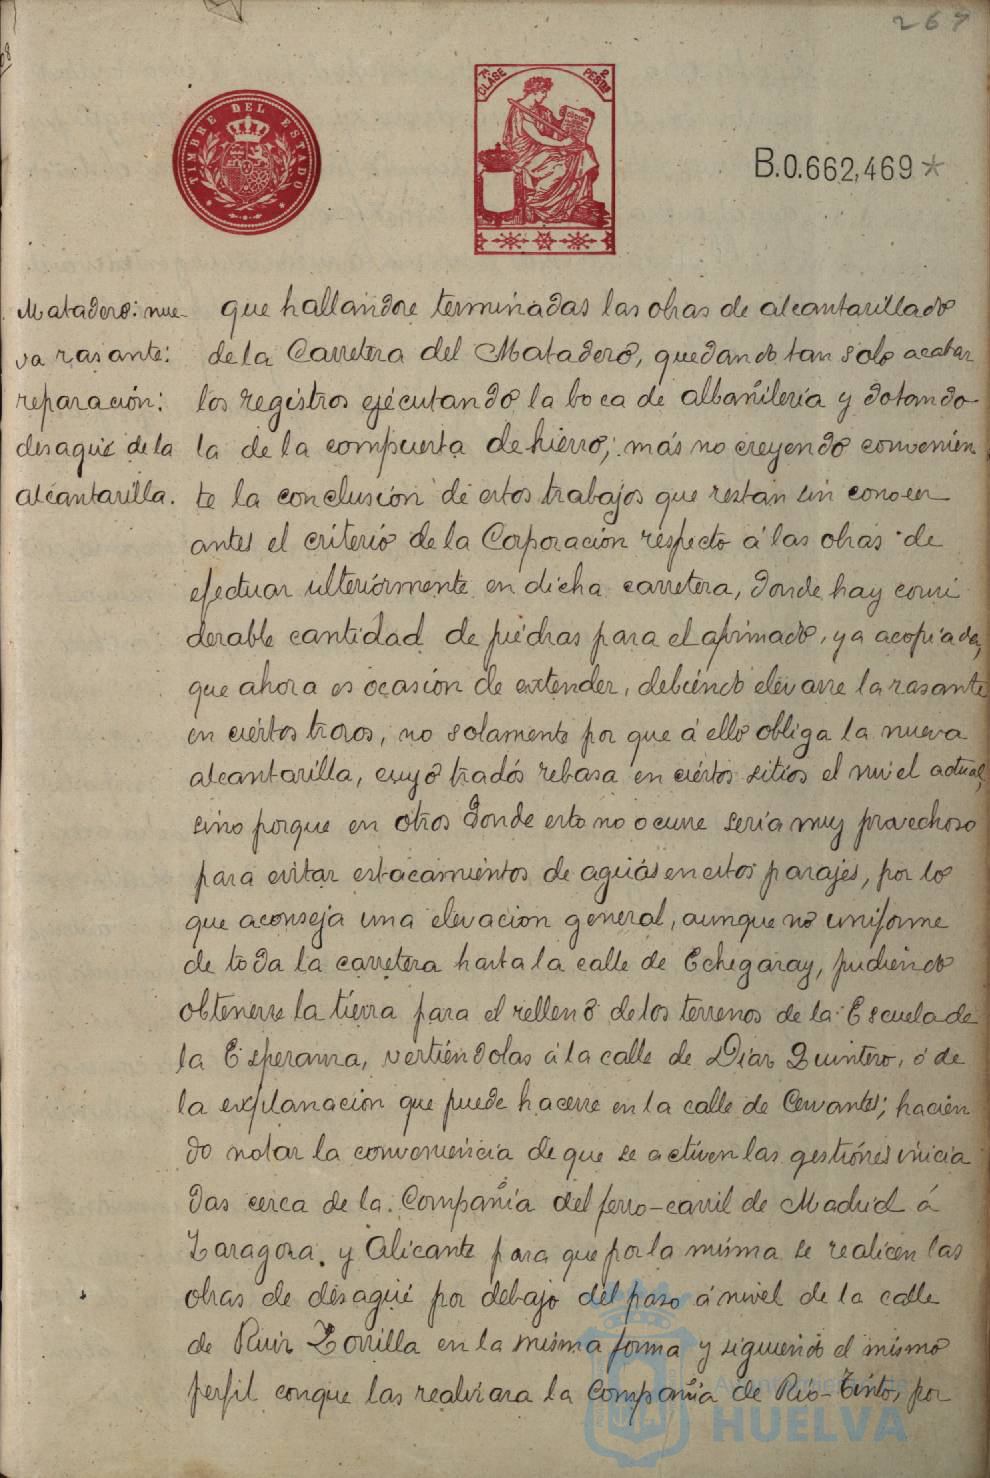 267
TIMBRE DEL ESTADO
7ª CLASE 2 PESTAS
B.0.662,469*
Matadero: nue-
va rasante:
reparación:
desagüe de la
alcantarilla.
que hallandose terminadas las obras de alcantarillado
de la Carretera del Matadero, quedando tan solo acabar
los registros ejecutando la boca de albañilería y dotando-
la de la compuerta de hierro; más no creyendo convenien
te la conclusión de estos trabajos que restan sin conocer
antes el criterio de la Corporación respecto á las obras de
efectuar ulteriormente en dicha carretera, donde hay consi
derable cantidad de piedras para el afirmado, ya acopiada,
que ahora es ocasión de extender, debiendo elevarse la rasante
en ciertos trozos, no solamente por que á ello obliga la nueva
alcantarilla, cuyo tradós rebasa en ciertos sitios el nivel actual,
sino porque en otros donde esto no ocurre sería muy provechoso
para evitar estacamientos de aguas en estos parajes, por lo
que aconseja una elevacion general, aunque no uniforme
de toda la carretera hasta la calle de Echegaray, pudiendo
obtenerse la tierra para el relleno de los terrenos de la Escuela de
la Esperanza, vertiéndolas á la calle de Diaz Quintero, ó de
la explanacion que puede hacerse en la calle de Cervantes; hacien
do notar la conveniencia de que se activen las gestiones inicia
das cerca de la Compañía del ferro-carril de Madrid á
Zaragoza y Alicante para que por la misma se realicen las
obras de desagüe por debajo del paso á nivel de la calle
de Ruiz Zorrilla en la misma forma y siguiendo el mismo
perfil conque las realizara la Compañia de Rio-Tinto, por
Ayuntamiento de
HUELVA